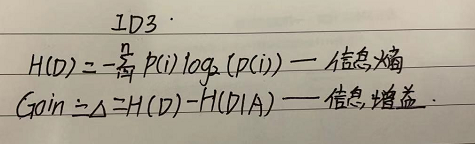 ID3.
H(D) = -∑ⁿᵢ₌₁ p(i) log₂(p(i)) — 信息熵
Gain = △ = H(D) - H(D|A) — 信息增益.